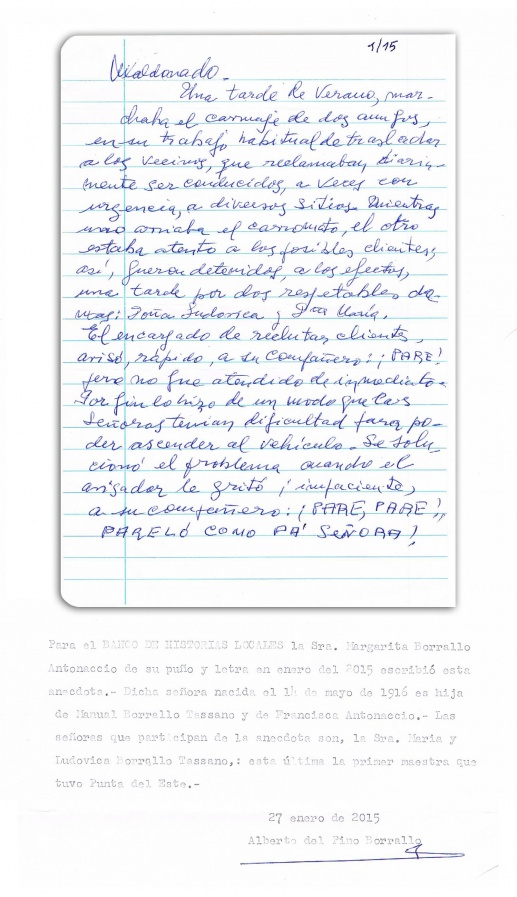 1/15
Maldonado.-
Una tarde de Verano, mar-
chaba el carruaje de dos amigos,
en su trabajo habitual de trasladar
a los vecinos, que reclamaban diaria-
mente ser conducidos, a veces con
urgencia, a diversos sitios. Mientras
uno arriaba el carromato, el otro
estaba atento a los posibles clientes,
así, fueron detenidos, a los efectos,
una tarde por dos respetables da-
mas: Doña Ludovica y Dña María.
El encargado de reclutar clientes,
avisó, rápido, a su compañero: ¡PARE!
pero no fue atendido de inmediato.
Por fin lo hizo de un modo que las
Señoras tenían dificultad para po-
der ascender al vehículo. Se solu-
cionó el problema cuando el
avisador le gritó, impaciente,
a su compañero: ¡PARE, PARE!,,
PARELÓ COMO PA' SEÑORA!
Para el BANCO DE HISTORIAS LOCALES la Sra. Margarita Borrallo
Antonaccio de su puño y letra en enero del 2015 escribió esta
anecdota.- Dicha señora nacida el 14 de mayo de 1916 es hija
de Manual Borrallo Tassano y de Francisca Antonaccio.- Las
señoras que participan de la anecdota son, la Sra. Maria y
Ludovica Borrallo Tassano,: esta última la primer maestra que
tuvo Punta del Este.-
27 enero de 2015
Alberto del Pino Borrallo